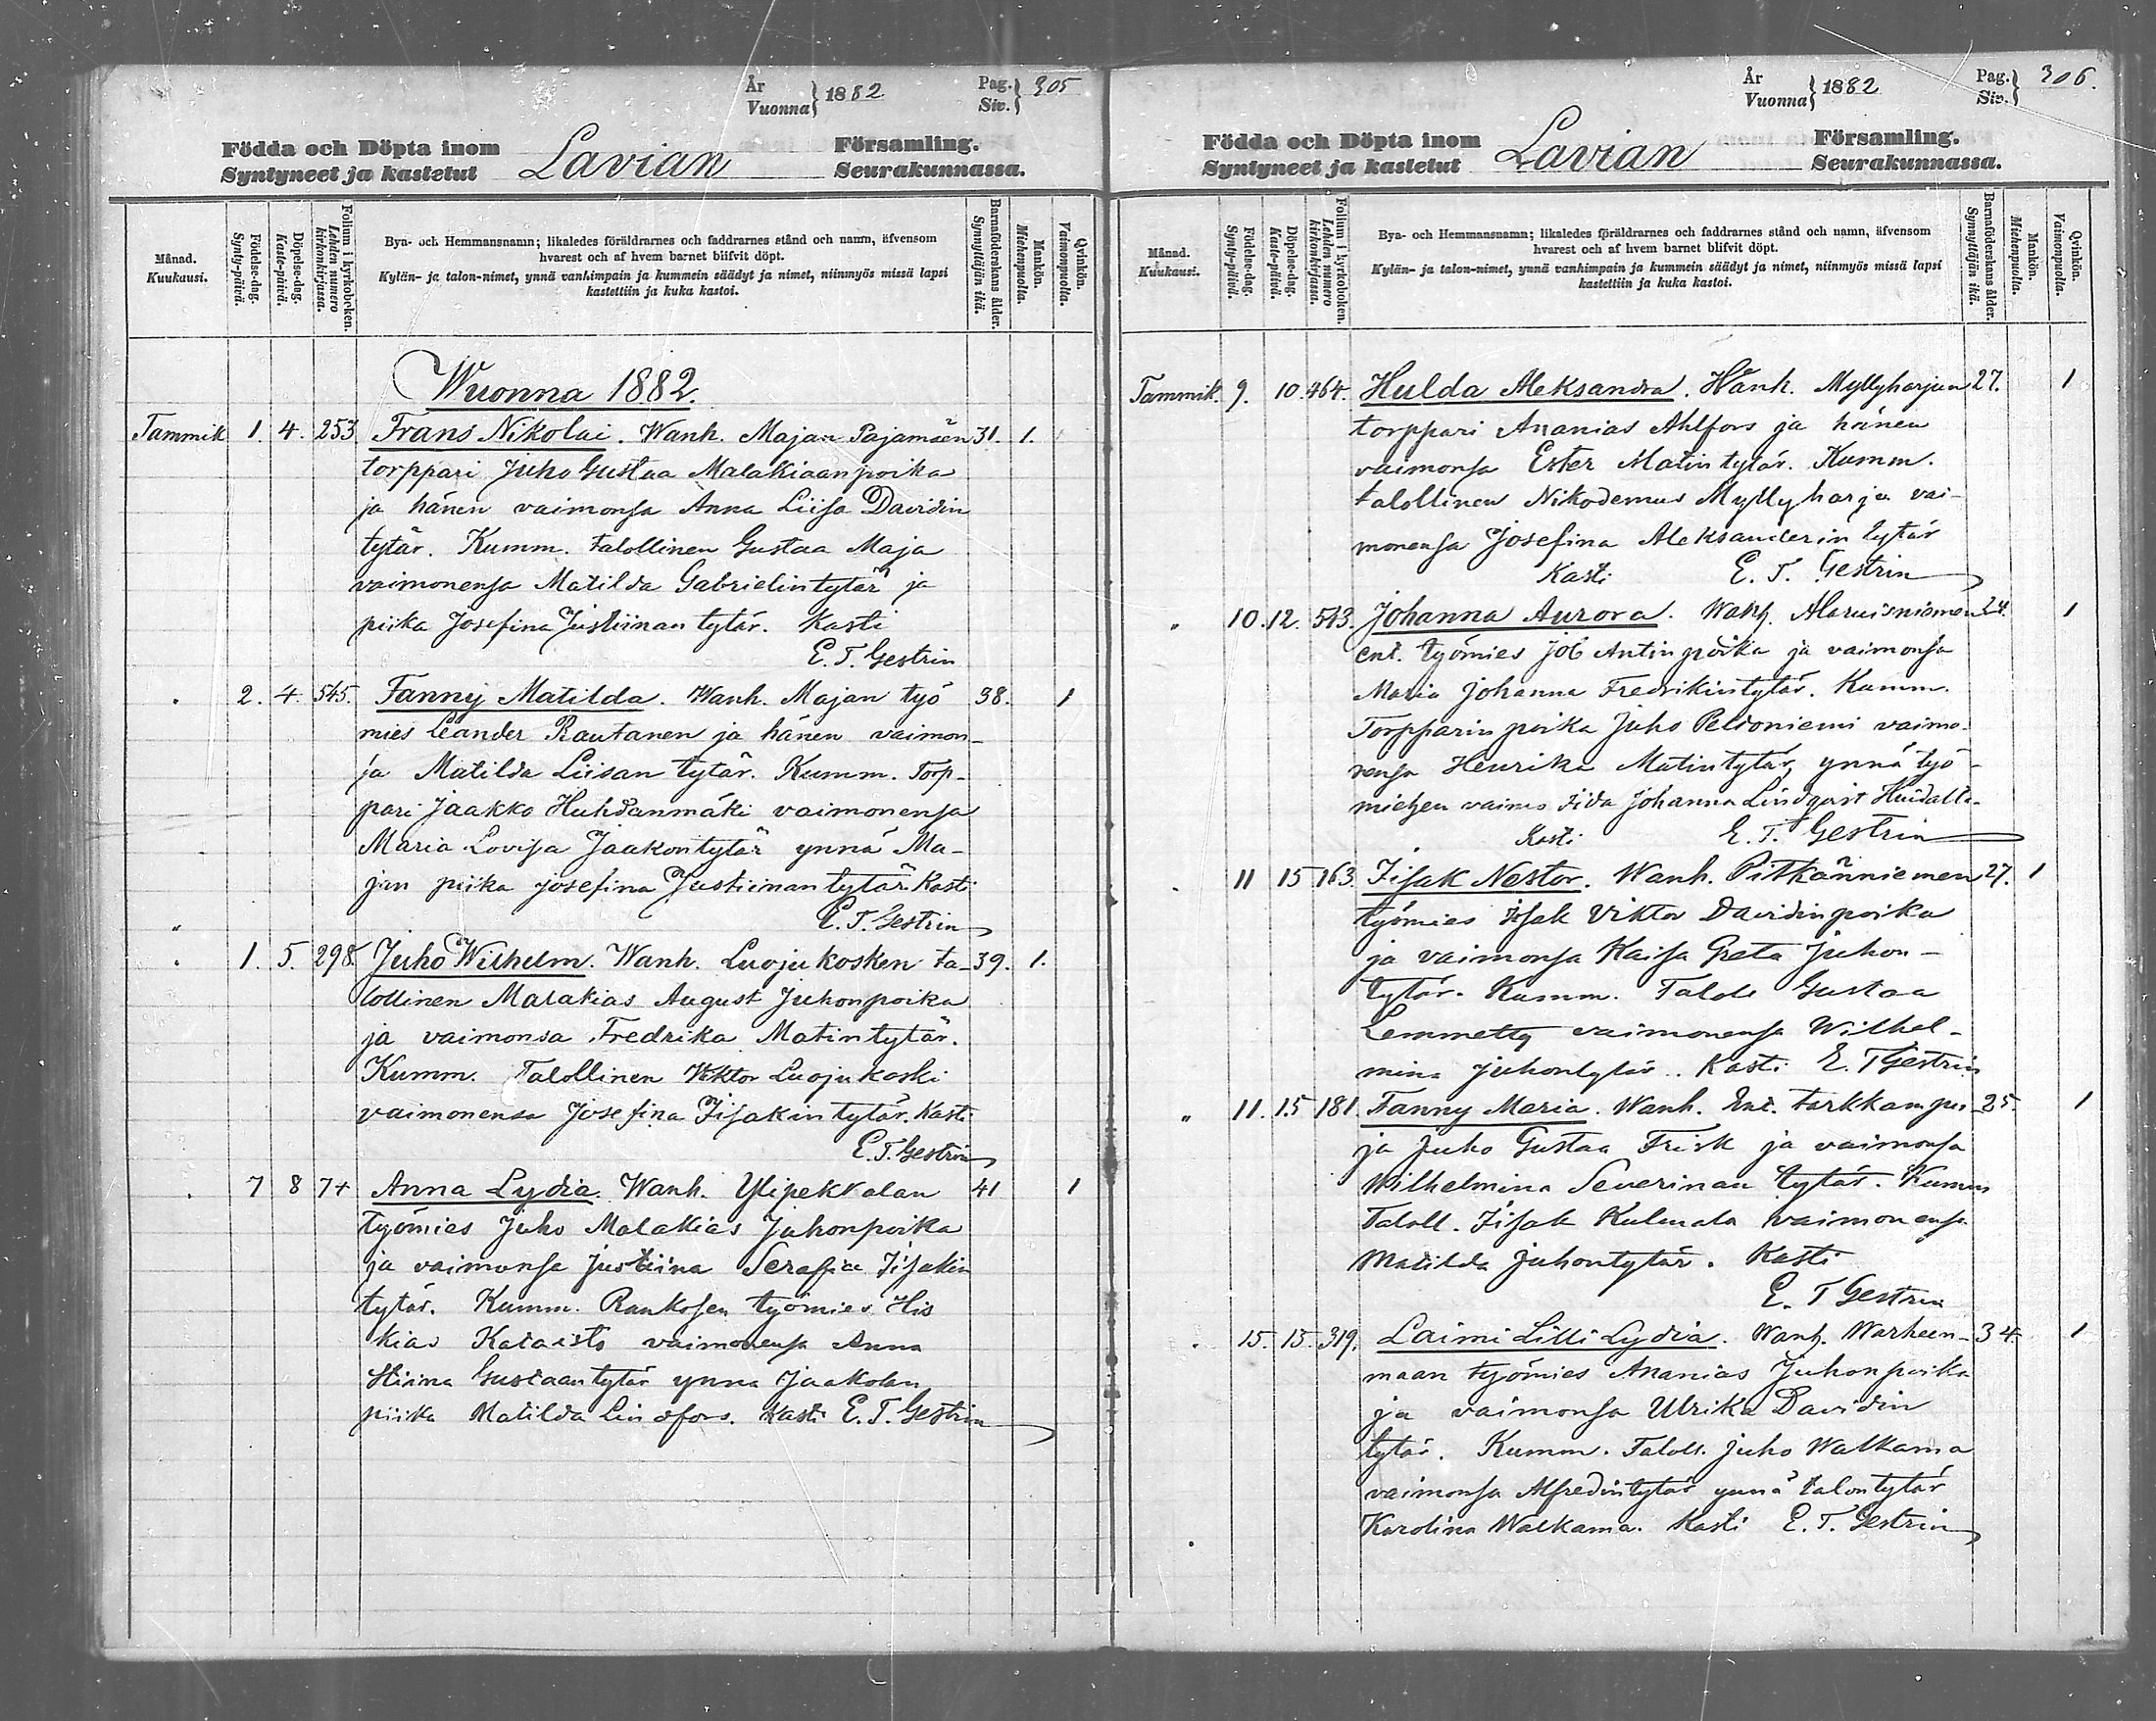 År
Vuonna } 1882.
Pag.
Siv. } 305
Födda och Döpta inom
Syntyneet ja kastetut
Lavian
Församling.
Seurakunnassa.
Månad.
Kuukausi.
Födelse-dag.
Synty-päivä.
Döpelse-dag.
Kaste-päivä.
Folium i kyrkoboken.
Lehden numero
kirkonkirjassa.
Bya- och Hemmansnamn; likaledes föräldrarnes och faddrarnes stånd och namn, äfvensom
hvarest och af hvem barnet blifvit döpt.
Kylän- ja talon-nimet, ynnä vanhimpain ja kummein säädyt ja nimet, niinmyös missä lapsi
kastettiin ja kuka kastoi.
Barnaföderskans ålder.
Synnyttäjän ikä.
Mankön.
Miehenpuolta.
Qvinkön.
Vaimonpuolta.
Wuonna 1882.
Tammik 1. 4. 253 Frans Nikolai. Wanh. Majan Pajamäen 31. 1.
torppari Juho Gustaa Malakiaanpoika
ja hänen vaimonsa Anna Liisa Davidin
tytär. Kumm. talollinen Gustaa Maja
vaimonensa Matilda Gabrielintytär ja
piika Josefina Justiinantytär. Kasti
E. T. Gestrin
" 2. 4. 545. Fanny Matilda. Wanh. Majan työ 38. 1
mies Leander Rautanen ja hänen vaimon-
sa Matilda Liisan tytär. Kumm. Torp-
pari Jaakko Huhdanmäki vaimonensa
Maria Lovisa Jaakontytär ynnä Ma-
jan piika Josefina Justiinantytär. Kasti
" E. T. Gestrin
" 1. 5. 298. Juho Wilhelm. Wanh. Luojukosken ta- 39. 1.
lollinen Malakias August Juhonpoika
ja vaimonsa Fredrika Matintytär.
Kumm. Talollinen Viktor Luojukoski
vaimonensa Josefina Iisakintytär. Kasti
E. T. Gestrin
" 7 8 74 Anna Lydia. Wanh. Ylipekkalan 41 1
työmies Juho Malakias Juhonpoika
ja vaimonsa Justiina Serafia Iisakin
tytär. Kumm. Rankosen työmies His
kias Kataisto vaimonensa Anna
Stiina Gustaantytär ynna Jaakolan
piika Matilda Lindfors. Kasti E. T. Gestrin
År
Vuonna } 1882
Pag.
Siv. } 306.
Födda och Döpta inom
Syntyneet ja kastetut
Lavian
Församling.
Seurakunnassa.
Månad.
Kuukausi.
Födelse-dag.
Synty-päivä.
Döpelse-dag.
Kaste-päivä.
Folium i kyrkoboken.
Lehden numero
kirkonkirjassa.
Bya- och Hemmansnamn; likaledes föräldrarnes och faddrarnes stånd och namn, äfvensom
hvarest och af hvem barnet blifvit döpt.
Kylän- ja talon-nimet, ynnä vanhimpain ja kummein säädyt ja nimet, niinmyös missä lapsi
kastettiin ja kuka kastoi.
Barnaföderskans ålder.
Synnyttäjän ikä.
Mankön.
Miehenpuolta.
Qvinkön.
Vaimonpuolta.
Tammik. 9. 10. 464. Hulda Aleksandra. Wanh. Myllyharjun 27. 1
torppari Ananias Ahlfors ja hänen
vaimonsa Ester Matintytär. Kumm.
talollinen Nikodemus Myllyharju vai-
monensa Josefina Aleksanderin tytär
Kasti E. T. Gestrin
" 10. 12. 543. Johanna Aurora. Wanh. 24. 1
ent. työmies Job Antinpoika ja vaimonsa
Maria Johanna Fredrikintytär. Kumm.
Torpparin poika Juho Peldoniemi vaimo-
nensa Henrika Matintytär, ynnä työ-
miehen vaimo Iida Johanna Lindqvist
Kasti E. T. Gestrin
" 11 15 163. Iisak Nestor. Wanh. Pitkänniemen 27. 1
työmies Iisak Viktor Davidinpoika
ja vaimonsa Kaisa Greta Juhon-
tytär. Kumm. Talol. Gustaa
Lemmetty vaimonensa Wilhel-
mina Juhontytär. Kasti E. T Gestrin
" 11. 15 181 Fanny Maria. Wanh. Ent. tarkkampu- 25. 1
ja Juho Gustaa Frisk ja vaimonsa
Wilhelmina Severinan tytär. Kumm
Taloll. Iisak Kulmala vaimonensa
Matilda Juhontytär. Kasti
E. T Gestrin
" 15. 15. 319. Laimi Lilli Lydia. Wanh. Warheen- 34. 1
maan työmies Ananias Juhonpoika
ja vaimonsa Ulrika Davidin
tytär. Kumm. Taloll. Juho Walkama
vaimonsa Alfredintytär ynnä talontytär
Karolina Walkama. Kasti E. T. Gestrin